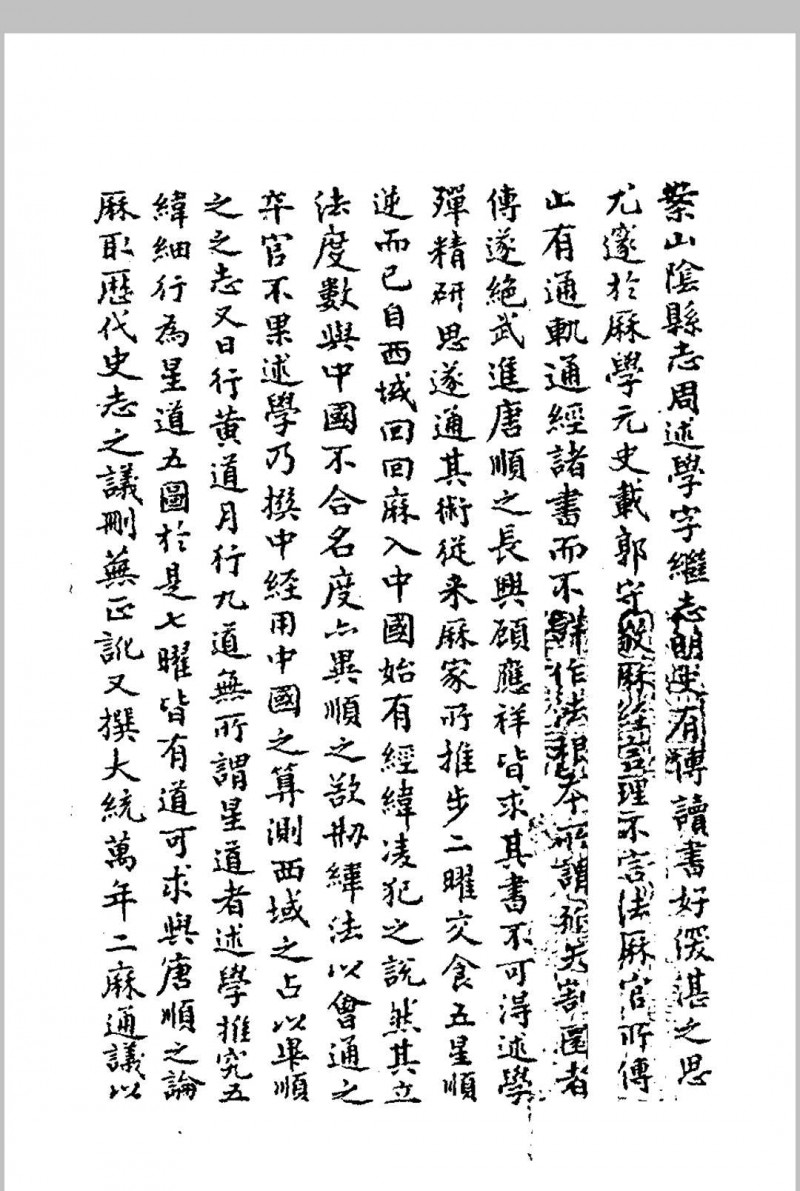 案山陰縣志周述學字繼志明史有傳讀書好深湛之思
尤邃於厤學元史載郭守敬厤經言理不言法厤官所傳
止有通軌通經諸書而不詳作法根本所謂弧矢割圜者
傳遂絕武進唐順之長興顧應祥皆求其書不可得述學
殫精研思遂通其術從来厤家所推步二曜交食五星順
逆而已自西域回回厤入中國始有經緯凌犯之說然其立
法度數與中國不合名度亦異順之欲刱緯法以會通之
卒官不果述學乃撰中経用中國之算測西域之占以畢順
之之志又日行黄道月行九道無所謂星道者述學推究五
緯細行為星道五圖於是七曜皆有道可求與唐順之論
厤取歴代史志之議刪蕪正訛又撰大統萬年二厤通議以